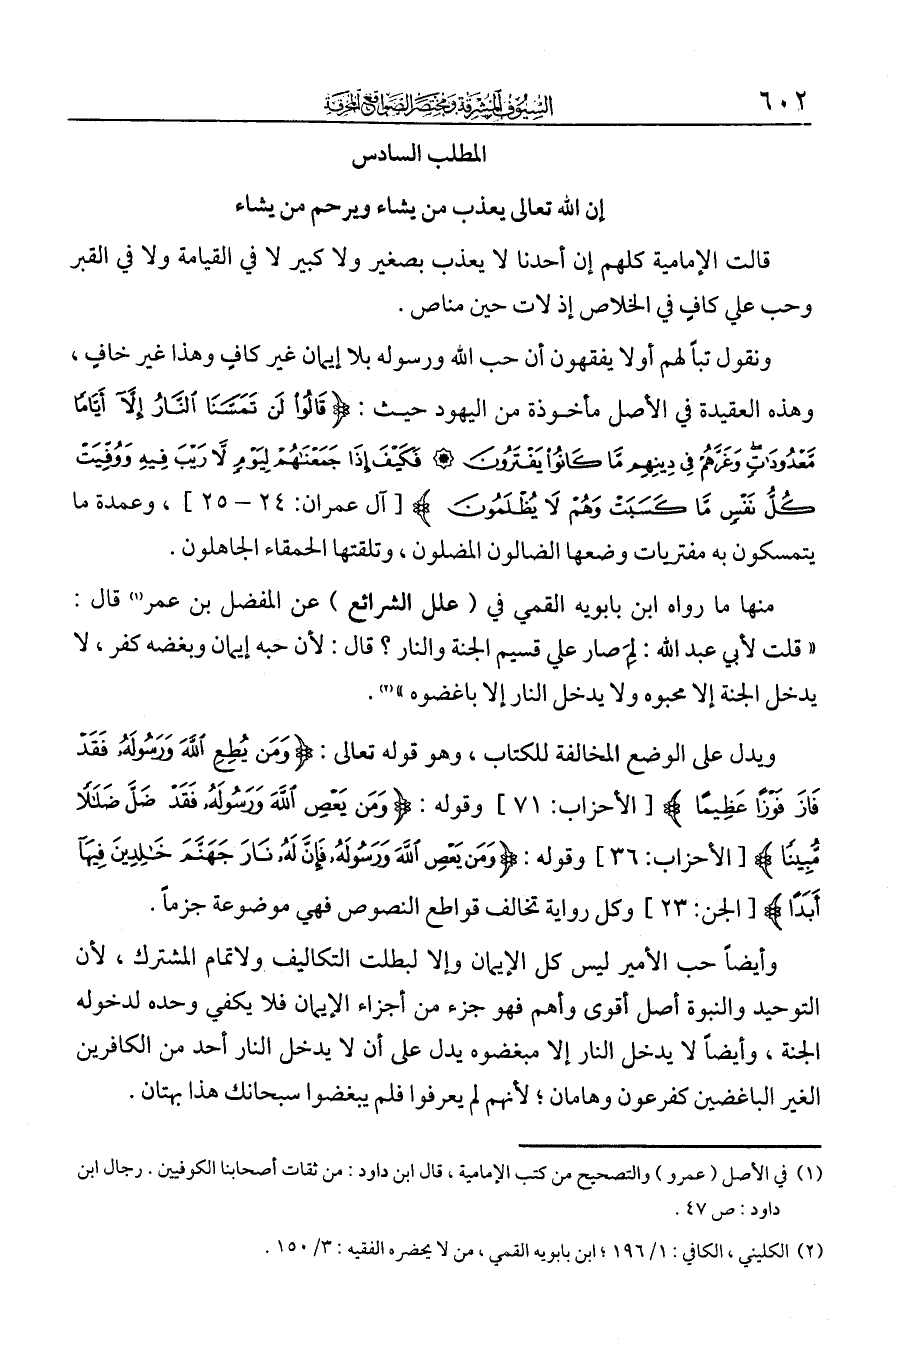 ٦٠٢ السيوف المشرقة ومختصر الصواقع المحرقة
المطلب السادس
إن الله تعالى يعذب من يشاء ويرحم من يشاء
قالت الإمامية كلهم إن أحدنا لا يعذب بصغير ولا كبير لا في القيامة ولا في القبر
وحب علي كافٍ في الخلاص إذ لات حين مناص .
ونقول تباً لهم أولا يفقهون أن حب الله ورسوله بلا إيمان غير كافٍ وهذا غير خافٍ ،
وهذه العقيدة في الأصل مأخوذة من اليهود حيث : ﴿ قَالُوا۟ لَن تَمَسَّنَا ٱلنَّارُ إِلَّآ أَيَّامًا
مَّعْدُودَٰتٍ ۖ وَغَرَّهُمْ فِى دِينِهِم مَّا كَانُوا۟ يَفْتَرُونَ ۞ فَكَيْفَ إِذَا جَمَعْنَٰهُمْ لِيَوْمٍ لَّا رَيْبَ فِيهِ وَوُفِّيَتْ
كُلُّ نَفْسٍ مَّا كَسَبَتْ وَهُمْ لَا يُظْلَمُونَ ﴾ [ آل عمران: ٢٤ – ٢٥ ] ، وعمدة ما
يتمسكون به مفتريات وضعها الضالون المضلون ، وتلقتها الحمقاء الجاهلون .
منها ما رواه ابن بابويه القمي في ( علل الشرائع ) عن المفضل بن عمر(١) قال :
« قلت لأبي عبد الله : لِمَ صار علي قسيم الجنة والنار ؟ قال : لأن حبه إيمان وبغضه كفر ، لا
يدخل الجنة إلا محبوه ولا يدخل النار إلا باغضوه »(٢) .
ويدل على الوضع المخالفة للكتاب ، وهو قوله تعالى : ﴿ وَمَن يُطِعِ ٱللَّهَ وَرَسُولَهُۥ فَقَدْ
فَازَ فَوْزًا عَظِيمًا ﴾ [ الأحزاب: ٧١ ] وقوله : ﴿ وَمَن يَعْصِ ٱللَّهَ وَرَسُولَهُۥ فَقَدْ ضَلَّ ضَلَٰلًا
مُّبِينًا ﴾ [ الأحزاب: ٣٦ ] وقوله : ﴿ وَمَن يَعْصِ ٱللَّهَ وَرَسُولَهُۥ فَإِنَّ لَهُۥ نَارَ جَهَنَّمَ خَٰلِدِينَ فِيهَآ
أَبَدًا ﴾ [ الجن: ٢٣ ] وكل رواية تخالف قواطع النصوص فهي موضوعة جزماً .
وأيضاً حب الأمير ليس كل الإيمان وإلا لبطلت التكاليف ولاتمام المشترك ، لأن
التوحيد والنبوة أصل أقوى وأهم فهو جزء من أجزاء الإيمان فلا يكفي وحده لدخوله
الجنة ، وأيضاً لا يدخل النار إلا مبغضوه يدل على أن لا يدخل النار أحد من الكافرين
الغير الباغضين كفرعون وهامان ؛ لأنهم لم يعرفوا فلم يبغضوا سبحانك هذا بهتان .
(١) في الأصل ( عمرو ) والتصحيح من كتب الإمامية ، قال ابن داود : من ثقات أصحابنا الكوفيين . رجال ابن
داود : ص ٤٧ .
(٢) الكليني ، الكافي : ١/ ١٩٦ ؛ ابن بابويه القمي ، من لا يحضره الفقيه : ٣/ ١٥٠ .